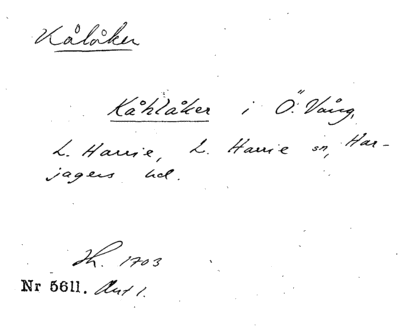 Kålåker
Kåhlåker i Ö. Vång,
L. Harrie, L. Harrie sn, Har-
jagers hd.
1703
Nr 5611. Akt 1.